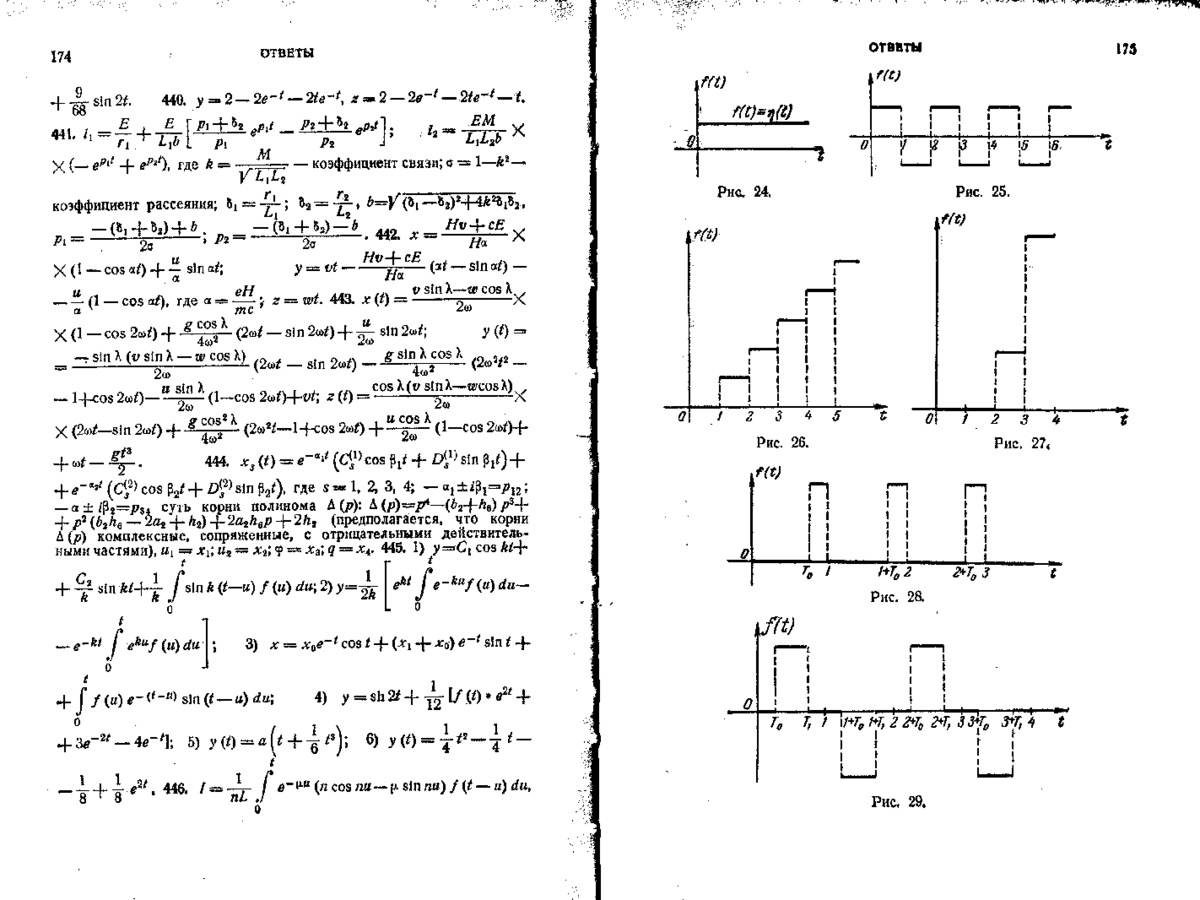 174 ОТВЕТЫ
+ 9/68 sin 2t. 440. y = 2 — 2e^{-t} — 2te^{-t}, z = 2 — 2e^{-t} — 2te^{-t} — t.
441. i₁ = E/r₁ + E/(L₁b) [ (p₁ + δ₂)/p₁ e^{p₁t} — (p₂ + δ₂)/p₂ e^{p₂t} ]; i₂ = EM/(L₁L₂b) ×
× (— e^{p₁t} + e^{p₂t}), где k = M/√(L₁L₂) — коэффициент связи; σ = 1—k²—
коэффициент рассеяния; δ₁ = r₁/L₁; δ₂ = r₂/L₂, b=√((δ₁—δ₂)²+4k²δ₁δ₂,
p₁ = (—(δ₁ + δ₂) + b)/2σ; p₂ = (—(δ₁ + δ₂) — b)/2σ. 442. x = (Hv + cE)/Hα ×
× (1 — cos αt) + u/α sin αt; y = vt — (Hv + cE)/Hα (αt — sin αt) —
— u/α (1 — cos αt), где α = eH/mc; z = wt. 443. x (t) = (v sin λ—w cos λ)/2ω ×
× (1 — cos 2ωt) + g cos λ/4ω² (2ωt — sin 2ωt) + u/2ω sin 2ωt; y (t) =
= — sin λ (v sin λ — w cos λ)/2ω (2ωt — sin 2ωt) — g sin λ cos λ/4ω² (2ω²t² —
— 1+cos 2ωt)— u sin λ/2ω (1—cos 2ωt)+vt; z (t) = cos λ (v sin λ—wcos λ)/2ω ×
× (2ωt—sin 2ωt) + g cos² λ/4ω² (2ω²t—1+cos 2ωt) + u cos λ/2ω (1—cos 2ωt)+
+ ωt — gt³/2. 444. x_s (t) = e^{-α₁t} (C_s^{(1)} cos β₁t + D_s^{(1)} sin β₁t) +
+ e^{-α₂t} (C_s^{(2)} cos β₂t + D_s^{(2)} sin β₂t), где s = 1, 2, 3, 4; — α₁ ± iβ₁=p₁₂;
— α ± iβ₂=p₃₄ суть корни полинома Δ (p): Δ (p)=p⁴—(b₂+h₆) p³+
+ p² (b₂h₆ — 2a₂ + h₂) + 2a₂h₆p + 2h₂ (предполагается, что корни
Δ (p) комплексные, сопряженные, с отрицательными действитель-
ными частями), u₁ = x₁; u₂ = x₂; φ = x₃; q = x₄. 445. 1) y=C₁ cos kt+
+ C₂/k sin kt + 1/k ∫₀ᵗ sin k (t—u) f (u) du; 2) y= 1/2k [ e^{kt} ∫₀ᵗ e^{-ku} f (u) du—
— e^{-kt} ∫₀ᵗ e^{ku} f (u) du ]; 3) x = x₀e^{-t} cos t + (x₁ + x₀) e^{-t} sin t +
+ ∫₀ᵗ f (u) e^{-(t-u)} sin (t — u) du; 4) y = sh 2t + 1/12 [f (t) * e^{2t} +
+ 3e^{-2t} — 4e^{-t}]; 5) y (t) = a (t + 1/6 t³); 6) y (t) = 1/4 t² — 1/4 t —
— 1/8 + 1/8 e^{2t}. 446. I = 1/nL ∫₀ᵗ e^{-μu} (n cos nu — μ sin nu) f (t — u) du,
ОТВЕТЫ 175
f(t) f(t)=η(t) 0 t
Рис. 24.
f(t) 0 1 2 3 4 5 6 t
Рис. 25.
f(t) 0 1 2 3 4 5 t
Рис. 26.
f(t) 0 1 2 3 4 t
Рис. 27.
f(t) 0 T₀ 1 1+T₀ 2 2+T₀ 3 t
Рис. 28.
f(t) 0 T₀ T₁ 1 1+T₀ 1+T₁ 2 2+T₀ 2+T₁ 3 3+T₀ 3+T₁ 4 t
Рис. 29.